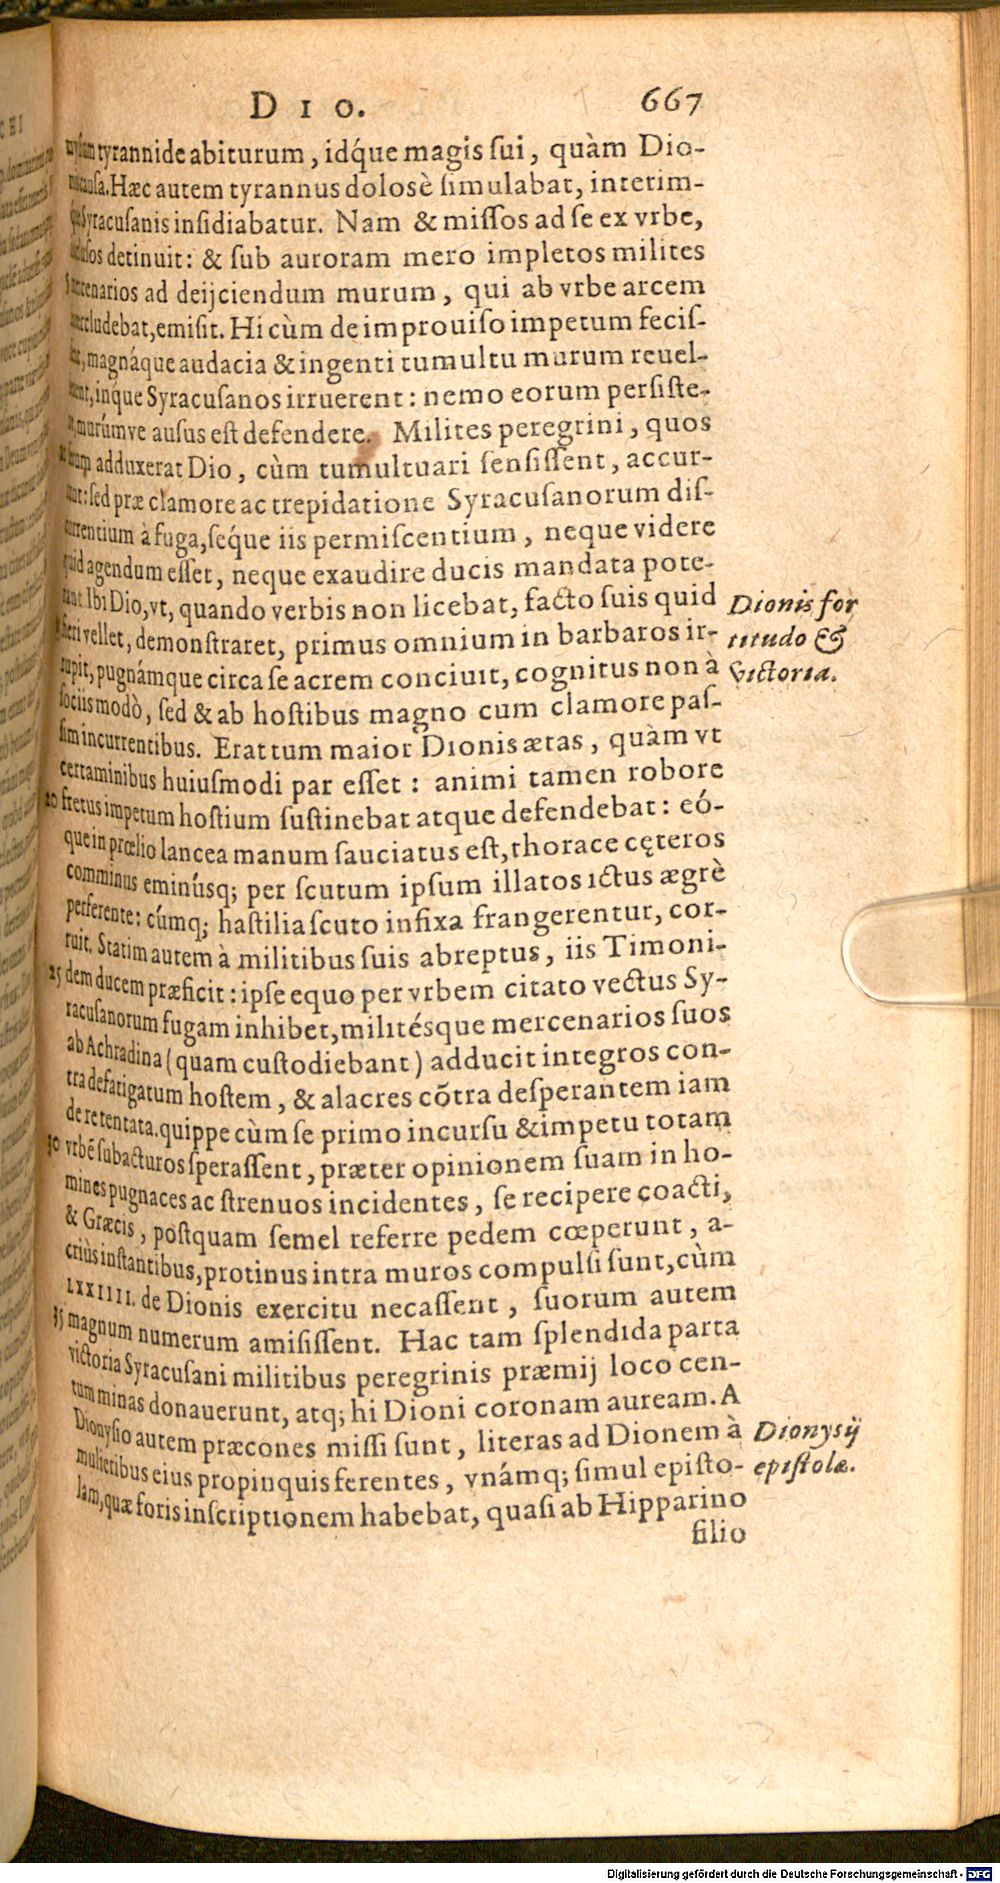 D I O. 667
tyrannide abiturum, idq́ue magis sui, quàm Dio-
nis causa. Hæc autem tyrannus dolosè simulabat, interim-
que Syracusanis insidiabatur. Nam & missos ad se ex vrbe,
detinuit: & sub auroram mero impletos milites
mercenarios ad deijciendum murum, qui ab vrbe arcem
intercludebat, emisit. Hi cùm de improuiso impetum fecis-
sent, magnáque audacia & ingenti tumultu murum reuel-
lerent, inq́ue Syracusanos irruerent: nemo eorum persiste-
re, murúmve ausus est defendere. Milites peregrini, quos
adduxerat Dio, cùm tumultuari sensissent, accur-
runt: sed præ clamore ac trepidatione Syracusanorum dis-
currentium à fuga, seq́ue iis permiscentium, neque videre
quid agendum esset, neque exaudire ducis mandata pote-
rant. Ibi Dio, vt, quando verbis non licebat, facto suis quid
fieri vellet, demonstraret, primus omnium in barbaros ir-
rupit, pugnámque circa se acrem conciuit, cognitus non à
sociis modò, sed & ab hostibus magno cum clamore pas-
sim incurrentibus. Erat tum maior Dionis ætas, quàm vt
certaminibus huiusmodi par esset: animi tamen robore
20 fretus impetum hostium sustinebat atque defendebat: eó-
que in prœlio lancea manum sauciatus est, thorace cęteros
comminus eminúsq; per scutum ipsum illatos ictus ægrè
perferente: cúmq; hastilia scuto infixa frangerentur, cor-
ruit. Statim autem à militibus suis abreptus, iis Timoni-
25 dem ducem præficit: ipse equo per vrbem citato vectus Sy-
racusanorum fugam inhibet, milité­sque mercenarios suos
ab Achradina (quam custodiebant) adducit integros con-
tra defatigatum hostem, & alacres cõtra desperantem iam
de re tentata. quippe cùm se primo incursu & impetu totam
30 vrbẽ subacturos sperassent, præter opinionem suam in ho-
mines pugnaces ac strenuos incidentes, se recipere coacti,
& Græcis, postquam semel referre pedem cœperunt, a-
criùs instantibus, protinus intra muros compulsi sunt, cùm
LXXIIII. de Dionis exercitu necassent, suorum autem
35 magnum numerum amisissent. Hac tam splendida parta
victoria Syracusani militibus peregrinis præmij loco cen-
tum minas donauerunt, atq; hi Dioni coronam auream. A
Dionysio autem præcones missi sunt, literas ad Dionem à
mulieribus eius propinquis ferentes, vnámq; simul episto-
lam, quæ foris inscriptionem habebat, quasi ab Hipparino
filio
Dionis for
titudo &
victoria.
Dionysij
epistolæ.
Digitalisierung gefördert durch die Deutsche Forschungsgemeinschaft - DFG